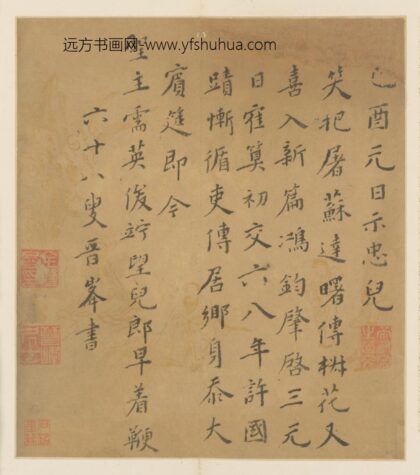 远方书画网-www.yfshuhua.com
己酉元日示忠兒
笑把屠蘇達曙傳樹花又
喜入新篇鴻鈞肇啓三元
日寉算初交六八年許國
蹟慚循吏傳居鄉身忝大
賓筵即今
聖主需英俊竚望兒郎早着鞭
六十八叟晋峯書